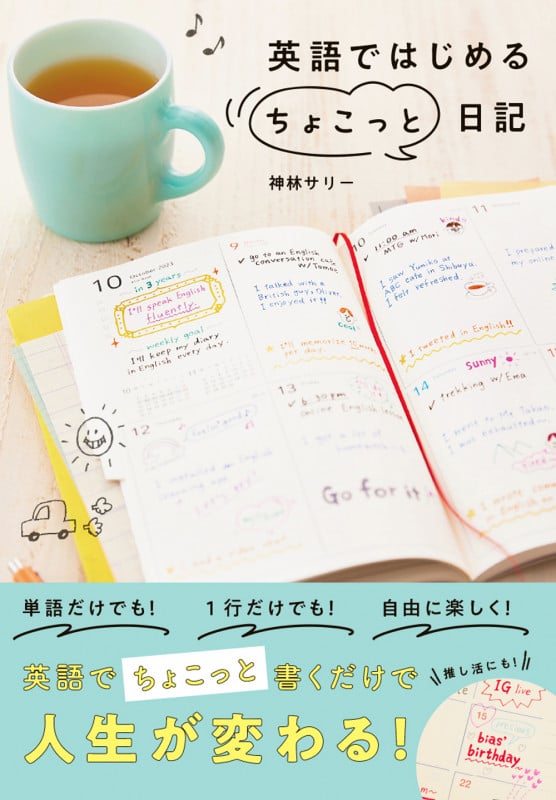 英語ではじめる
ちょこっと 日記
神林サリー
10 October 2023
in 3 years
I'll speak English
fluently.
weekly goal
I'll keep my diary
in English every day.
9
go to an English
conversation cafe
I talked with a
British guy, Oliver.
I enjoyed it!!
cool
I'll memorize
per day.
10
11:00 am
MTG w/Mori
I saw Yumiko at
ABC cafe in Shibuya.
I felt refreshed.
I tweeted in English!!
11
I prepared
my online
12
13
6:30 pm
online English
I got a lot of
Go for it
14
sunny
trekking w/Ema
I went to Mt. Takao
I was exhausted
I wrote
単語だけでも!
1行だけでも!
自由に楽しく!
英語で ちょこっと 書くだけで
人生が変わる!
推し活にも!
IG live
15
bias'
birthday
22